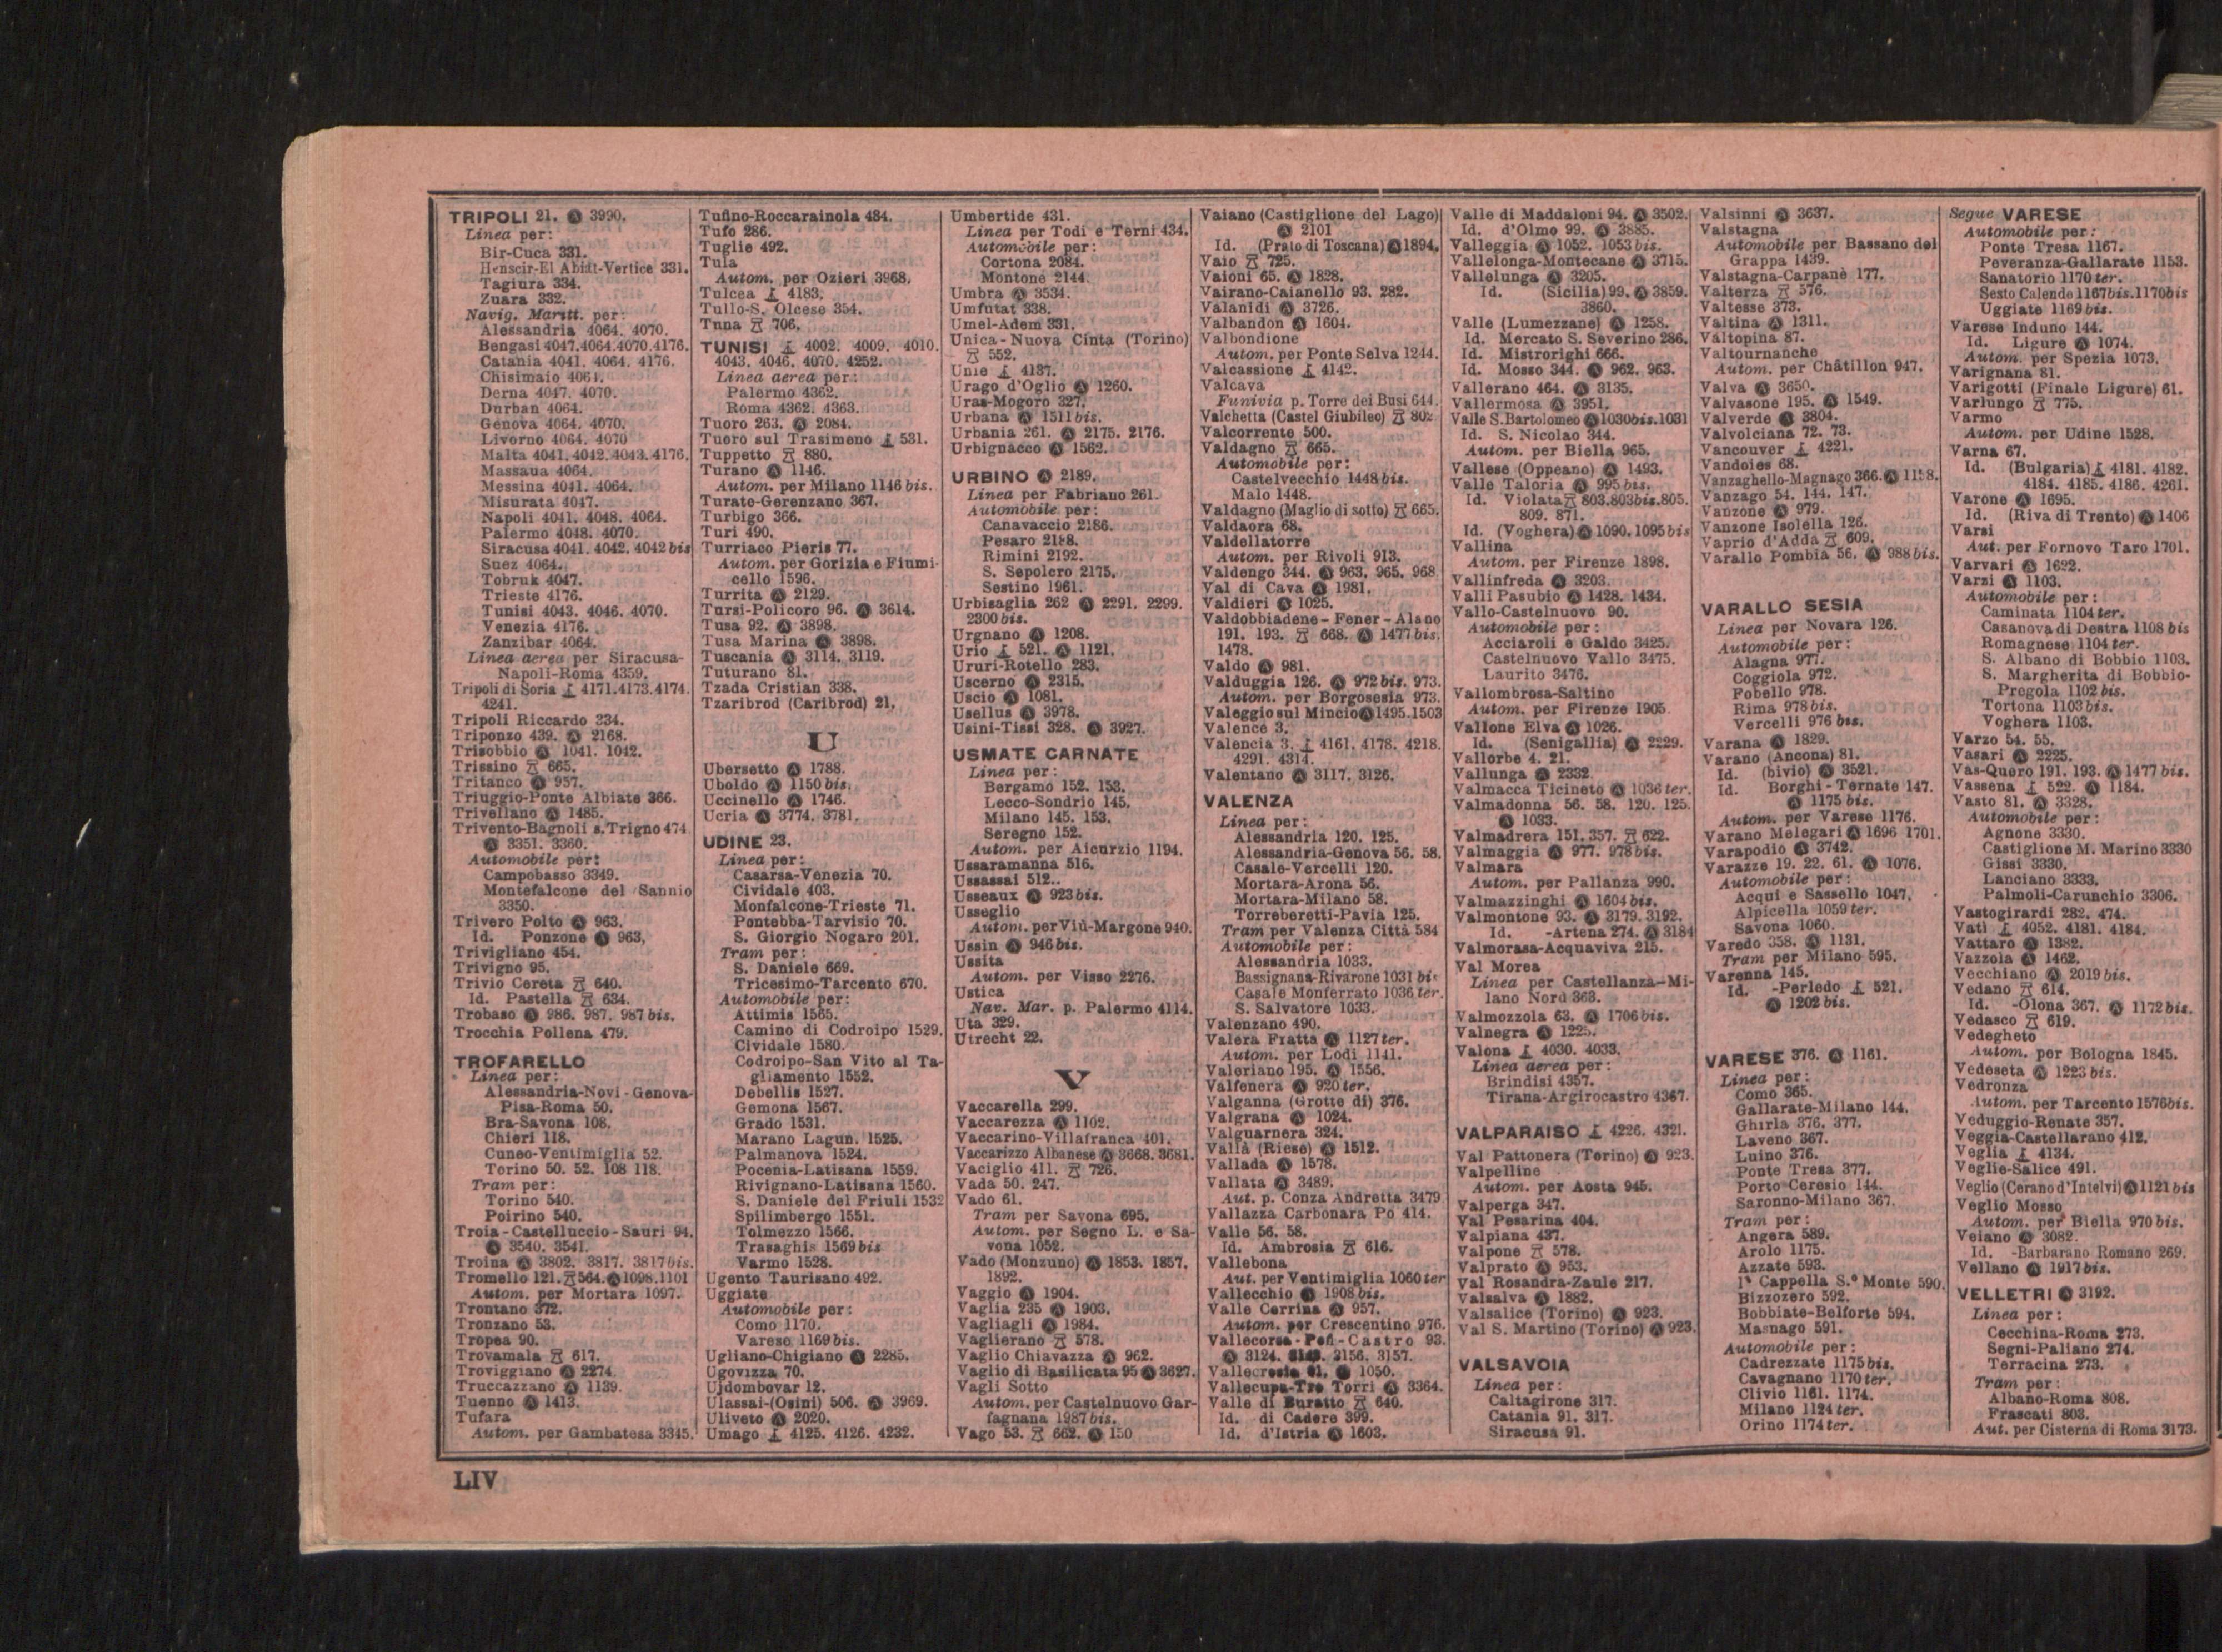 TRIPOLI 21. Ⓐ 3990.
Linea per:
Bir-Cuca 331.
Henscir-El Abiàt-Vertice 331.
Tagiura 334.
Zuara 332.
Navig. Maritt. per:
Alessandria 4064. 4070.
Bengasi 4047.4064.4070.4176.
Catania 4041. 4064. 4176.
Chisimaio 4064.
Derna 4047. 4070.
Durban 4064.
Genova 4064. 4070.
Livorno 4064. 4070
Malta 4041. 4042. 4043. 4176.
Massaua 4064.
Messina 4041. 4064.
Misurata 4047.
Napoli 4041. 4048. 4064.
Palermo 4048. 4070.
Siracusa 4041. 4042. 4042 bis
Suez 4064.
Tobruk 4047.
Trieste 4176.
Tunisi 4043. 4046. 4070.
Venezia 4176.
Zanzibar 4064.
Linea aerea per Siracusa-
Napoli-Roma 4359.
Tripoli di Soria ⚓ 4171.4173.4174.
4241.
Tripoli Riccardo 334.
Triponzo 439. Ⓐ 2168.
Trisobbio Ⓐ 1041. 1042.
Trissino 665.
Tritanco Ⓐ 957.
Triuggio-Ponte Albiate 366.
Trivellano Ⓐ 1485.
Trivento-Bagnoli s. Trigno 474
Ⓐ 3351. 3360.
Automobile per:
Campobasso 3349.
Montefalcone del Sannio
3350.
Trivero Polto Ⓐ 963.
Id. Ponzone Ⓐ 963,
Trivigliano 454.
Trivigno 95.
Trivio Cereta 640.
Id. Pastella 634.
Trobaso Ⓐ 986. 987. 987 bis.
Trocchia Pollena 479.
TROFARELLO
Linea per:
Alessandria-Novi-Genova-
Pisa-Roma 50.
Bra-Savona 108.
Chieri 118.
Cuneo-Ventimiglia 52.
Torino 50. 52. 108 118.
Tram per:
Torino 540.
Poirino 540.
Troia-Castelluccio-Sauri 94.
Ⓐ 3540. 3541.
Troina Ⓐ 3802. 3817. 3817 bis.
Tromello 121. 564. Ⓐ 1098.1101
Autom. per Mortara 1097.
Trontano 372.
Tronzano 53.
Tropea 90.
Trovamala 617.
Troviggiano Ⓐ 2274.
Truccazzano Ⓐ 1139.
Tuenno Ⓐ 1413.
Tufara
Autom. per Gambatesa 3345.
Tufino-Roccarainola 484.
Tufo 286.
Tuglie 492.
Tula
Autom. per Ozieri 3968.
Tulcea ⚓ 4183.
Tullo-S. Olcese 354.
Tuna 706.
TUNISI ⚓ 4002. 4009. 4010.
4043. 4046. 4070. 4252.
Linea aerea per:
Palermo 4362.
Roma 4362. 4363.
Tuoro 263. Ⓐ 2084.
Tuoro sul Trasimeno ⚓ 531.
Tuppetto 880.
Turano Ⓐ 1146.
Autom. per Milano 1146 bis.
Turate-Gerenzano 367.
Turbigo 366.
Turi 490.
Turriaco Pieris 77.
Autom. per Gorizia e Fiumi-
cello 1596.
Turrita Ⓐ 2129.
Tursi-Policoro 96. Ⓐ 3614.
Tusa 92. Ⓐ 3898.
Tusa Marina Ⓐ 3898.
Tuscania Ⓐ 3114. 3119.
Tuturano 81.
Tzada Cristian 338.
Tzaribrod (Caribrod) 21.
U
Ubersetto Ⓐ 1788.
Uboldo Ⓐ 1150 bis.
Uccinello Ⓐ 1746.
Ucria Ⓐ 3774. 3781.
UDINE 23.
Linea per:
Casarsa-Venezia 70.
Cividale 403.
Monfalcone-Trieste 71.
Pontebba-Tarvisio 70.
S. Giorgio Nogaro 201.
Tram per:
S. Daniele 669.
Tricesimo-Tarcento 670.
Automobile per:
Attimis 1565.
Camino di Codroipo 1529.
Cividale 1580.
Codroipo-San Vito al Ta-
gliamento 1552.
Debellis 1527.
Gemona 1567.
Grado 1531.
Marano Lagun. 1525.
Palmanova 1524.
Pocenia-Latisana 1559.
Rivignano-Latisana 1560.
S. Daniele del Friuli 1532
Spilimbergo 1551.
Tolmezzo 1566.
Trasaghis 1569 bis
Varmo 1528.
Ugento Taurisano 492.
Uggiate
Automobile per:
Como 1170.
Varese 1169 bis.
Ugliano-Chigiano Ⓐ 2285.
Ugovizza 70.
Ujdombovar 12.
Ulassai-(Osini) 506. Ⓐ 3969.
Uliveto Ⓐ 2020.
Umago ⚓ 4125. 4126. 4232.
Umbertide 431.
Linea per Todi e Terni 434.
Automobile per:
Cortona 2084.
Montone 2144.
Umbra Ⓐ 3534.
Umfutat 338.
Umel-Adem 331.
Unica-Nuova Cinta (Torino)
552.
Unie ⚓ 4137.
Urago d'Oglio Ⓐ 1260.
Uras-Mogoro 327.
Urbana Ⓐ 1511 bis.
Urbania 261. Ⓐ 2175. 2176.
Urbignacco Ⓐ 1562.
URBINO Ⓐ 2189.
Linea per Fabriano 261.
Automobile per:
Canavaccio 2186.
Pesaro 2188.
Rimini 2192.
S. Sepolcro 2175.
Sestino 1961.
Urbisaglia 262 Ⓐ 2291. 2299.
2300 bis.
Urgnano Ⓐ 1208.
Urio ⚓ 521. Ⓐ 1121.
Ururi-Rotello 283.
Uscerno Ⓐ 2315.
Uscio Ⓐ 1081.
Usellus Ⓐ 3978.
Usini-Tissi 328. Ⓐ 3927.
USMATE CARNATE
Linea per:
Bergamo 152. 153.
Lecco-Sondrio 145.
Milano 145. 153.
Seregno 152.
Autom. per Aicurzio 1194.
Ussaramanna 516.
Ussassai 512..
Usseaux Ⓐ 923 bis.
Usseglio
Autom. per Viù-Margone 940.
Ussin Ⓐ 946 bis.
Ussita
Autom. per Visso 2276.
Ustica
Nav. Mar. p. Palermo 4114.
Uta 329.
Utrecht 22.
V
Vaccarella 299.
Vaccarezza Ⓐ 1102.
Vaccarino-Villafranca 401.
Vaccarizzo Albanese Ⓐ 3668. 3681.
Vaciglio 411. 726.
Vada 50. 247.
Vado 61.
Tram per Savona 695.
Autom. per Segno L. e Sa-
vona 1052.
Vado (Monzuno) Ⓐ 1853. 1857.
1892.
Vaggio Ⓐ 1904.
Vaglia 235 Ⓐ 1903.
Vagliagli Ⓐ 1984.
Vaglierano 578.
Vaglio Chiavazza Ⓐ 962.
Vaglio di Basilicata 95 Ⓐ 3627.
Vagli Sotto
Autom. per Castelnuovo Gar-
fagnana 1987 bis.
Vago 53. 662. Ⓐ 150
Vaiano (Castiglione del Lago)
Ⓐ 2101
Id. (Prato di Toscana) Ⓐ 1894.
Vaio 725.
Vaioni 65. Ⓐ 1828.
Vairano-Caianello 93. 282.
Valanidi Ⓐ 3726.
Valbandon Ⓐ 1604.
Valbondione
Autom. per Ponte Selva 1244.
Valcassione ⚓ 4142.
Valcava
Funivia p. Torre dei Busi 644.
Valchetta (Castel Giubileo) 802
Valcorrente 500.
Valdagno 665.
Automobile per:
Castelvecchio 1448 bis.
Malo 1448.
Valdagno (Maglio di sotto) 665.
Valdaora 68.
Valdellatorre
Autom. per Rivoli 913.
Valdengo 344. Ⓐ 963. 965. 968
Val di Cava Ⓐ 1981.
Valdieri Ⓐ 1025.
Valdobbiadene-Fener-Alano
191. 193. 668. Ⓐ 1477 bis.
1478.
Valdo Ⓐ 981.
Valduggia 126. Ⓐ 972 bis. 973.
Autom. per Borgosesia 973.
Valeggio sul Mincio Ⓐ 1495.1503
Valence 3.
Valencia 3. ⚓ 4161. 4178. 4218.
4291. 4314.
Valentano Ⓐ 3117. 3126.
VALENZA
Linea per:
Alessandria 120. 125.
Alessandria-Genova 56. 58.
Casale-Vercelli 120.
Mortara-Arona 56.
Mortara-Milano 58.
Torreberetti-Pavia 125.
Tram per Valenza Città 584
Automobile per:
Alessandria 1033.
Bassignana-Rivarone 1031 bis
Casale Monferrato 1036 ter.
S. Salvatore 1033.
Valenzano 490.
Valera Fratta Ⓐ 1127 ter.
Autom. per Lodi 1141.
Valeriano 195. Ⓐ 1556.
Valfenera Ⓐ 920 ter.
Valganna (Grotte di) 376.
Valgrana Ⓐ 1024.
Valguarnera 324.
Vallà (Riese) Ⓐ 1512.
Vallada Ⓐ 1578.
Vallata Ⓐ 3489.
Aut. p. Conza Andretta 3479
Vallazza Carbonara Po 414.
Valle 56. 58.
Id. Ambrosia 616.
Vallebona
Aut. per Ventimiglia 1060 ter
Vallecchio Ⓐ 1908 bis.
Valle Cerrina Ⓐ 957.
Autom. per Crescentino 976.
Vallecorsa-Castro 93.
Ⓐ 3124. 3156. 3157.
Vallecrosia Ⓐ 1050.
Vallecupa-Tre Torri Ⓐ 3364.
Valle di Buratto 640.
Id. di Cadore 399.
Id. d'Istria Ⓐ 1603.
Valle di Maddaloni 94. Ⓐ 3502.
Id. d'Olmo 99. Ⓐ 3885.
Valleggia Ⓐ 1052. 1053 bis.
Vallelonga-Montecane Ⓐ 3715.
Vallelunga Ⓐ 3205.
Id. (Sicilia) 99. Ⓐ 3859.
3860.
Valle (Lumezzane) Ⓐ 1258.
Id. Mercato S. Severino 286.
Id. Mistrorighi 666.
Id. Mosso 344. Ⓐ 962. 963.
Vallerano 464. Ⓐ 3135.
Vallermosa Ⓐ 3951.
Valle S. Bartolomeo Ⓐ 1030bis.1031
Id. S. Nicolao 344.
Autom. per Biella 965.
Vallese (Oppeano) Ⓐ 1493.
Valle Taloria Ⓐ 995 bis.
Id. Violata 803.803bis.805.
809. 871.
Id. (Voghera) Ⓐ 1090. 1095 bis
Vallina
Autom. per Firenze 1898.
Vallinfreda Ⓐ 3203.
Valli Pasubio Ⓐ 1428. 1434.
Vallo-Castelnuovo 90.
Automobile per:
Acciaroli e Galdo 3425.
Castelnuovo Vallo 3475.
Laurito 3476.
Vallombrosa-Saltino
Autom. per Firenze 1905
Vallone Elva Ⓐ 1026.
Id. (Senigallia) Ⓐ 2229.
Vallorbe 4. 21.
Vallunga Ⓐ 2332
Valmacca Ticineto Ⓐ 1036 ter.
Valmadonna 56. 58. 120. 125.
Ⓐ 1033.
Valmadrera 151. 357. 622.
Valmaggia Ⓐ 977. 978 bis.
Valmara
Autom. per Pallanza 990.
Valmazzinghi Ⓐ 1604 bis.
Valmontone 93. Ⓐ 3179. 3192.
Id. -Artena 274. Ⓐ 3184
Valmorasa-Acquaviva 215.
Val Morea
Linea per Castellanza-Mi-
lano Nord 363.
Valmozzola 63. Ⓐ 1706 bis.
Valnegra Ⓐ 1225.
Valona ⚓ 4030. 4033.
Linea aerea per:
Brindisi 4357.
Tirana-Argirocastro 4367.
VALPARAISO ⚓ 4226. 4321.
Val Pattonera (Torino) Ⓐ 923.
Valpelline
Autom. per Aosta 945.
Valperga 347.
Val Pesarina 404.
Valpiana 437.
Valpone 578.
Valprato Ⓐ 953.
Val Rosandra-Zaule 217.
Valsalva Ⓐ 1882.
Valsalice (Torino) Ⓐ 923.
Val S. Martino (Torino) Ⓐ 923.
VALSAVOIA
Linea per:
Caltagirone 317.
Catania 91. 317.
Siracusa 91.
Valsinni Ⓐ 3637.
Valstagna
Automobile per Bassano del
Grappa 1439.
Valstagna-Carpanè 177.
Valterza 576.
Valtesse 373.
Valtina Ⓐ 1311.
Valtopina 87.
Valtournanche
Autom. per Châtillon 947.
Valva Ⓐ 3650.
Valvasone 195. Ⓐ 1549.
Valverde Ⓐ 3804.
Valvolciana 72. 73.
Vancouver ⚓ 4221.
Vandoies 68.
Vanzaghello-Magnago 366. Ⓐ 1158.
Vanzago 54. 144. 147.
Vanzone Ⓐ 979.
Vanzone Isolella 126.
Vaprio d'Adda 609.
Varallo Pombia 56. Ⓐ 988 bis.
VARALLO SESIA
Linea per Novara 126.
Automobile per:
Alagna 977.
Coggiola 972.
Fobello 978.
Rima 978 bis.
Vercelli 976 bis.
Varana Ⓐ 1829.
Varano (Ancona) 81.
Id. (bivio) Ⓐ 3521.
Id. Borghi-Ternate 147.
Ⓐ 1175 bis.
Autom. per Varese 1176.
Varano Melegari Ⓐ 1696 1701.
Varapodio Ⓐ 3742.
Varazze 19. 22. 61. Ⓐ 1076.
Automobile per:
Acqui e Sassello 1047.
Alpicella 1059 ter.
Savona 1060.
Varedo 358. Ⓐ 1131.
Tram per Milano 595.
Varenna 145.
Id. -Perledo ⚓ 521.
Ⓐ 1202 bis.
VARESE 376. Ⓐ 1161.
Linea per:
Como 365.
Gallarate-Milano 144.
Ghirla 376. 377.
Laveno 367.
Luino 376.
Ponte Tresa 377.
Porto Ceresio 144.
Saronno-Milano 367.
Tram per:
Angera 589.
Arolo 1175.
Azzate 593.
1ª Cappella S.º Monte 590.
Bizzozero 592.
Bobbiate-Belforte 594.
Masnago 591.
Automobile per:
Cadrezzate 1175 bis.
Cavagnano 1170 ter.
Clivio 1161. 1174.
Milano 1124 ter.
Orino 1174 ter.
Segue VARESE
Automobile per:
Ponte Tresa 1167.
Peveranza-Gallarate 1153.
Sanatorio 1170 ter.
Sesto Calende 1167bis.1170bis
Uggiate 1169 bis.
Varese Induno 144.
Id. Ligure Ⓐ 1074.
Autom. per Spezia 1073.
Varignana 81.
Varigotti (Finale Ligure) 61.
Varlungo 775.
Varmo
Autom. per Udine 1528.
Varna 67.
Id. (Bulgaria) ⚓ 4181. 4182.
4184. 4185. 4186. 4261.
Varone Ⓐ 1695.
Id. (Riva di Trento) Ⓐ 1406
Varsi
Aut. per Fornovo Taro 1701.
Varvari Ⓐ 1622.
Varzi Ⓐ 1103.
Automobile per:
Caminata 1104 ter.
Casanova di Destra 1108 bis
Romagnese 1104 ter.
S. Albano di Bobbio 1103.
S. Margherita di Bobbio-
Pregola 1102 bis.
Tortona 1103 bis.
Voghera 1103.
Varzo 54. 55.
Vasari Ⓐ 2225.
Vas-Quero 191. 193. Ⓐ 1477 bis.
Vassena ⚓ 522. Ⓐ 1184.
Vasto 81. Ⓐ 3328.
Automobile per:
Agnone 3330.
Castiglione M. Marino 3330
Gissi 3330.
Lanciano 3333.
Palmoli-Carunchio 3306.
Vastogirardi 282. 474.
Vati ⚓ 4052. 4181. 4184.
Vattaro Ⓐ 1382.
Vazzola Ⓐ 1462.
Vecchiano Ⓐ 2019 bis.
Vedano 614.
Id. -Olona 367. Ⓐ 1172 bis.
Vedasco 619.
Vedegheto
Autom. per Bologna 1845.
Vedeseta Ⓐ 1223 bis.
Vedronza
Autom. per Tarcento 1576bis.
Veduggio-Renate 357.
Veggia-Castellarano 412.
Veglia ⚓ 4134.
Veglie-Salice 491.
Veglio (Cerano d'Intelvi) Ⓐ 1121 bis
Veglio Mosso
Autom. per Biella 970 bis.
Veiano Ⓐ 3082
Id. -Barbarano Romano 269.
Vellano Ⓐ 1917 bis.
VELLETRI Ⓐ 3192.
Linea per:
Cecchina-Roma 273.
Segni-Paliano 274.
Terracina 273.
Tram per:
Albano-Roma 808.
Frascati 803.
Aut. per Cisterna di Roma 3173.
LIV